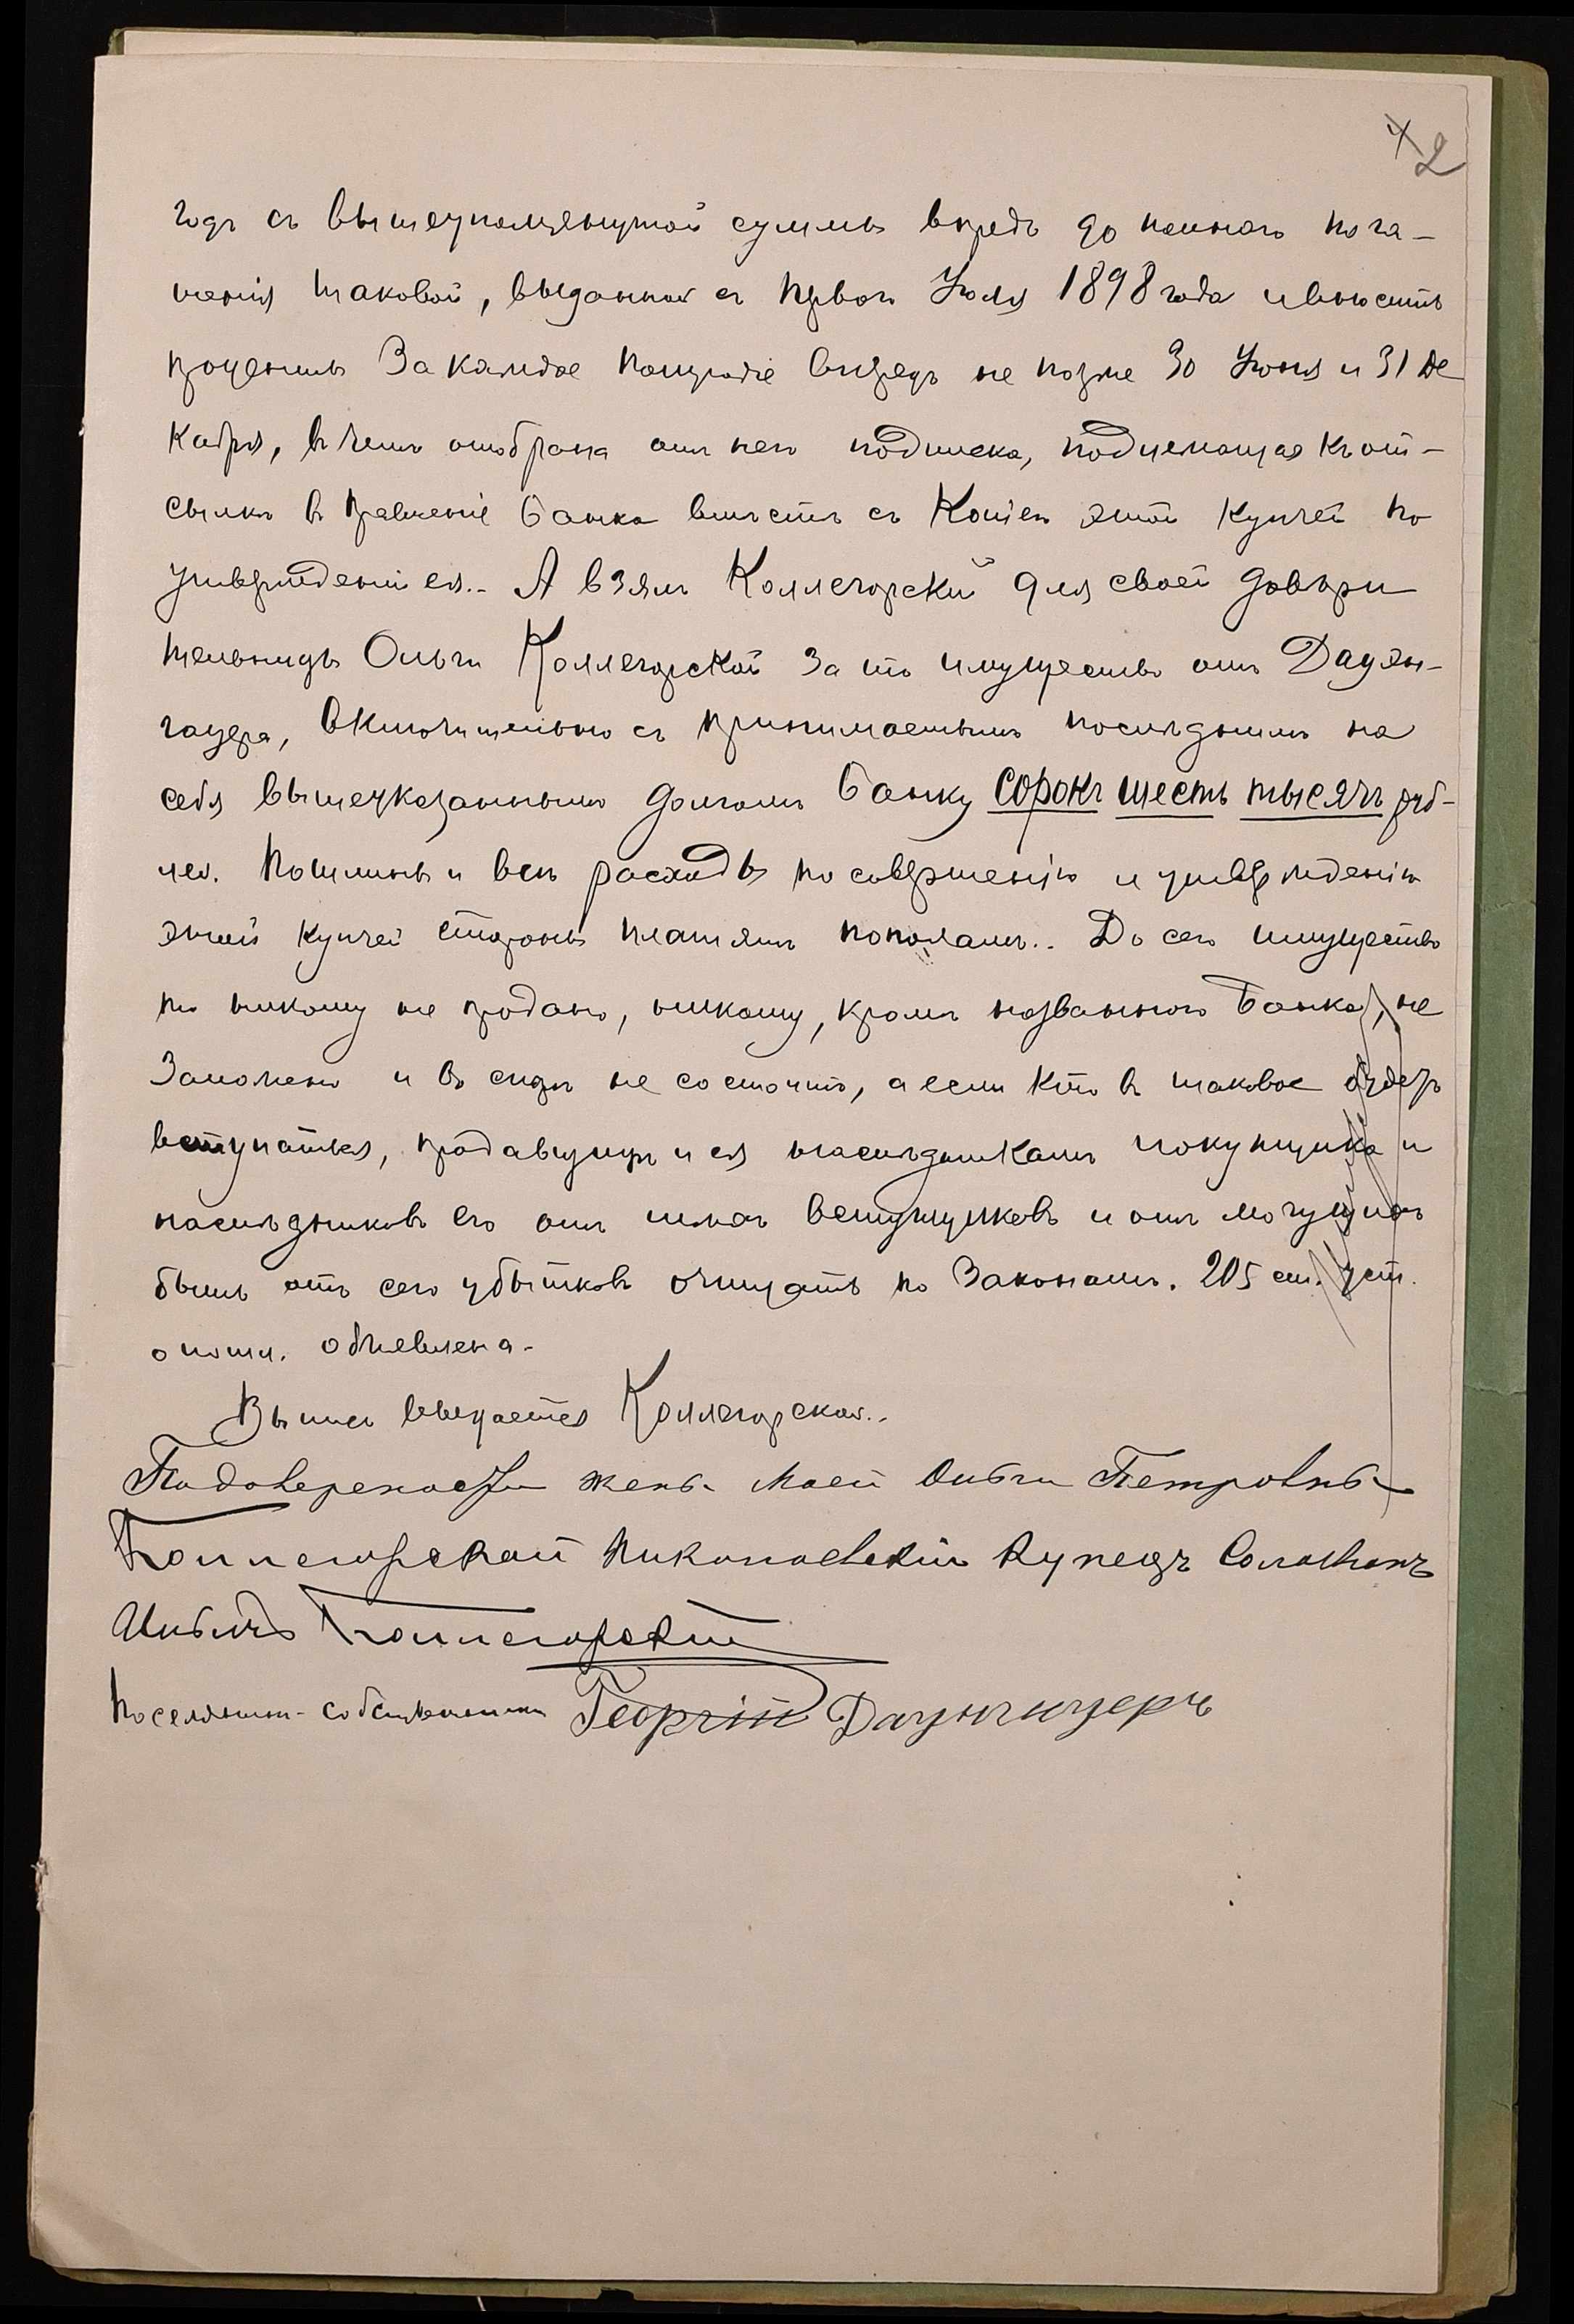 4 2
годъ съ вышеупомянутой суммы впредь до полнаго пога-
шенія таковой, выданной съ перваго Іюля 1898 года и вносить
проценты за каждое полугодіе впередъ не позже 30 Іюня и 31 Де
кабря, въ чемъ отобрана отъ него подписка, подлежащая къ от-
сылкѣ въ Правленіе Банка вмѣстѣ съ копіею этой купчей по
утвержденіи ея.- А взялъ Коллегорскій для своей довѣри
тельницы Ольги Коллегорской за то имущество отъ Дауэн-
гауера, включительно съ принимаемымъ послѣднимъ на
себя вышеуказаннымъ долгомъ Банку сорокъ шесть тысячъ руб-
лей. Пошлины и всѣ расходы по совершенію и утвержденію
этой купчей стороны платятъ пополамъ.. До сего имущество
то никому не продано, никому, кромѣ названнаго Банка, не
заложено и въ спорѣ не состоитъ, а если кто въ таковое будетъ
вступаться, продавщицѣ и ея наслѣдникамъ покупщика и
наслѣдниковъ его отъ тѣхъ вступщиковъ и отъ могущихъ
быть отъ сего убытковъ очищать по законамъ. 205 ст. Уст.
о пошл. объявлена.-
Выпись выдается Коллегорской..
По доверености жены моей Ольги Петровны
Коллегорской Николаевскій Купецъ Соломонъ
Коллегорскій
Поселянинъ-собственникъ Георгій Дауэнгауеръ